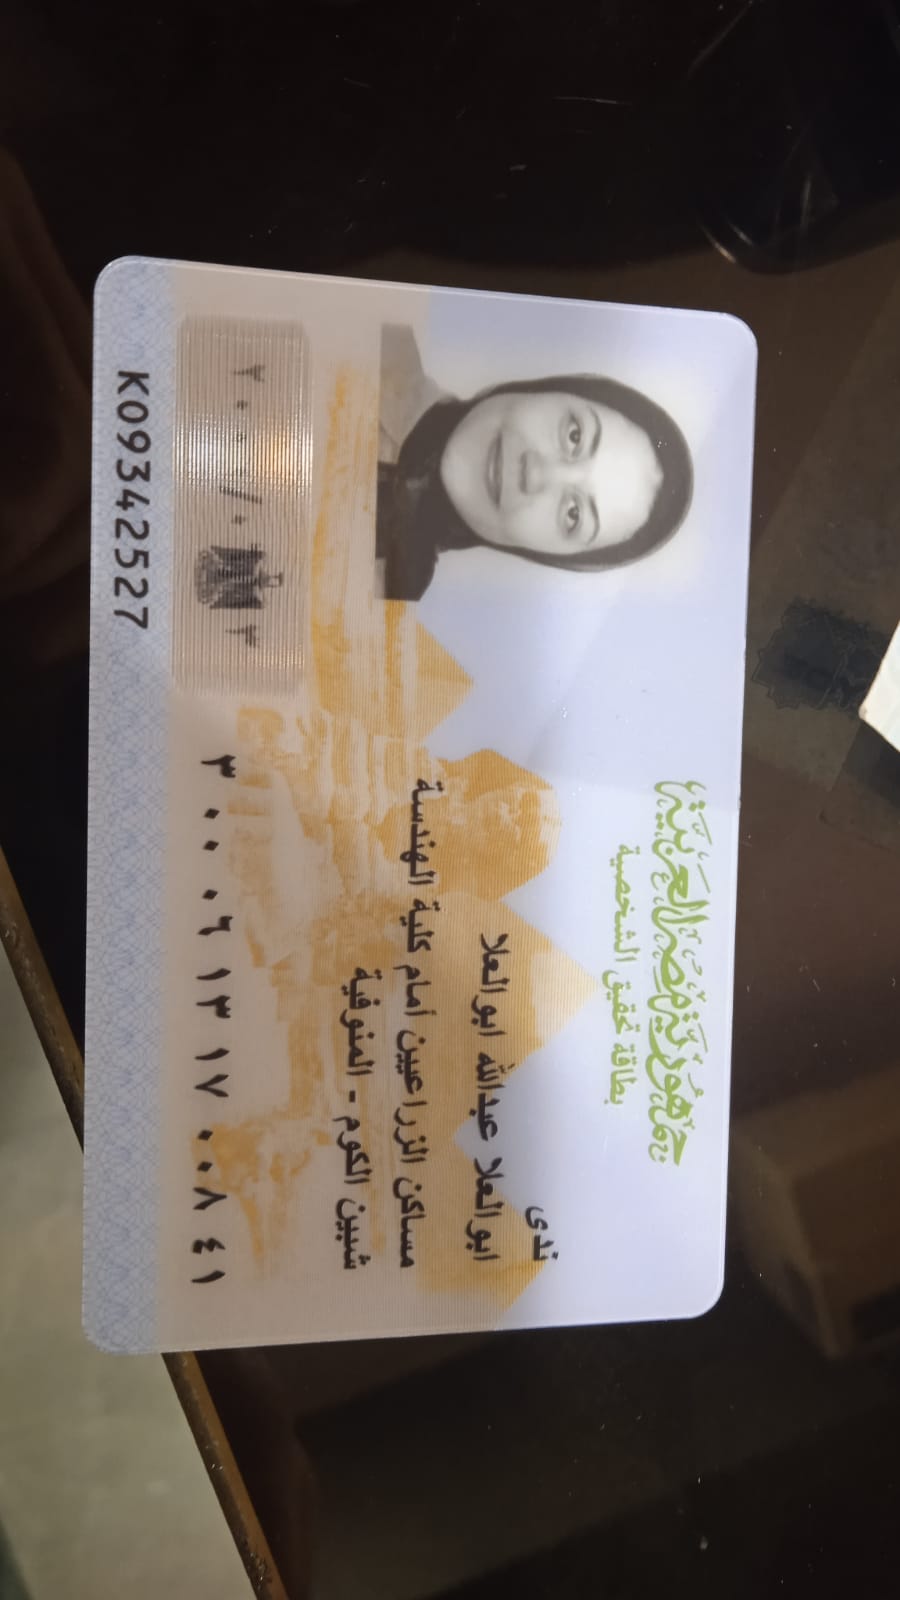 جمهورية مصر العربية
بطاقة تحقيق الشخصية
ندى
ابوالعلا عبدالله ابوالعلا
مساكن الزراعيين أمام كلية الهندسة
شبين الكوم - المنوفية
٣٠٠٠٦١٣١٧٠٠٨٤١
K09342527